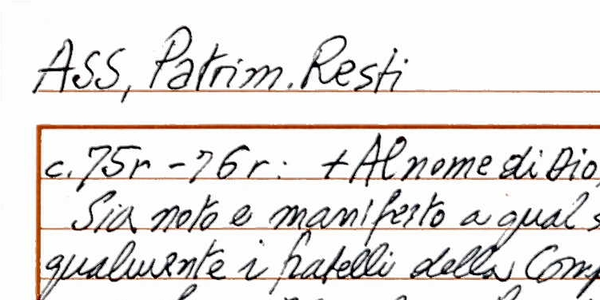 ASS, Patrim. Resti
c. 75r - 76r: + Al nome di Dio,
Sia noto e manifesto a qual s
qualmente i fratelli della Comp